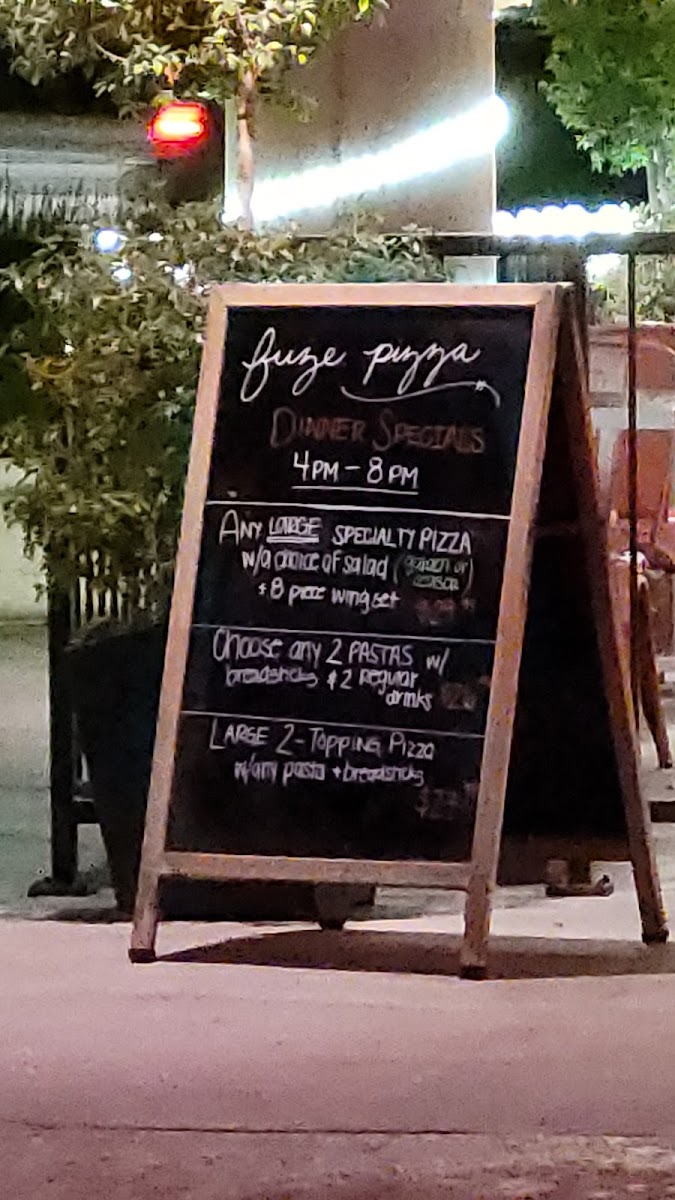 fuze pizza
DINNER SPECIALS
4PM - 8PM
ANY LARGE SPECIALTY PIZZA
w/a choice of salad (garden or
caesar)
+ 8 piece wing set
Choose any 2 PASTAS w/
breadsticks & 2 regular
drinks
LARGE 2-TOPPING PIZZA
w/any pasta + breadsticks